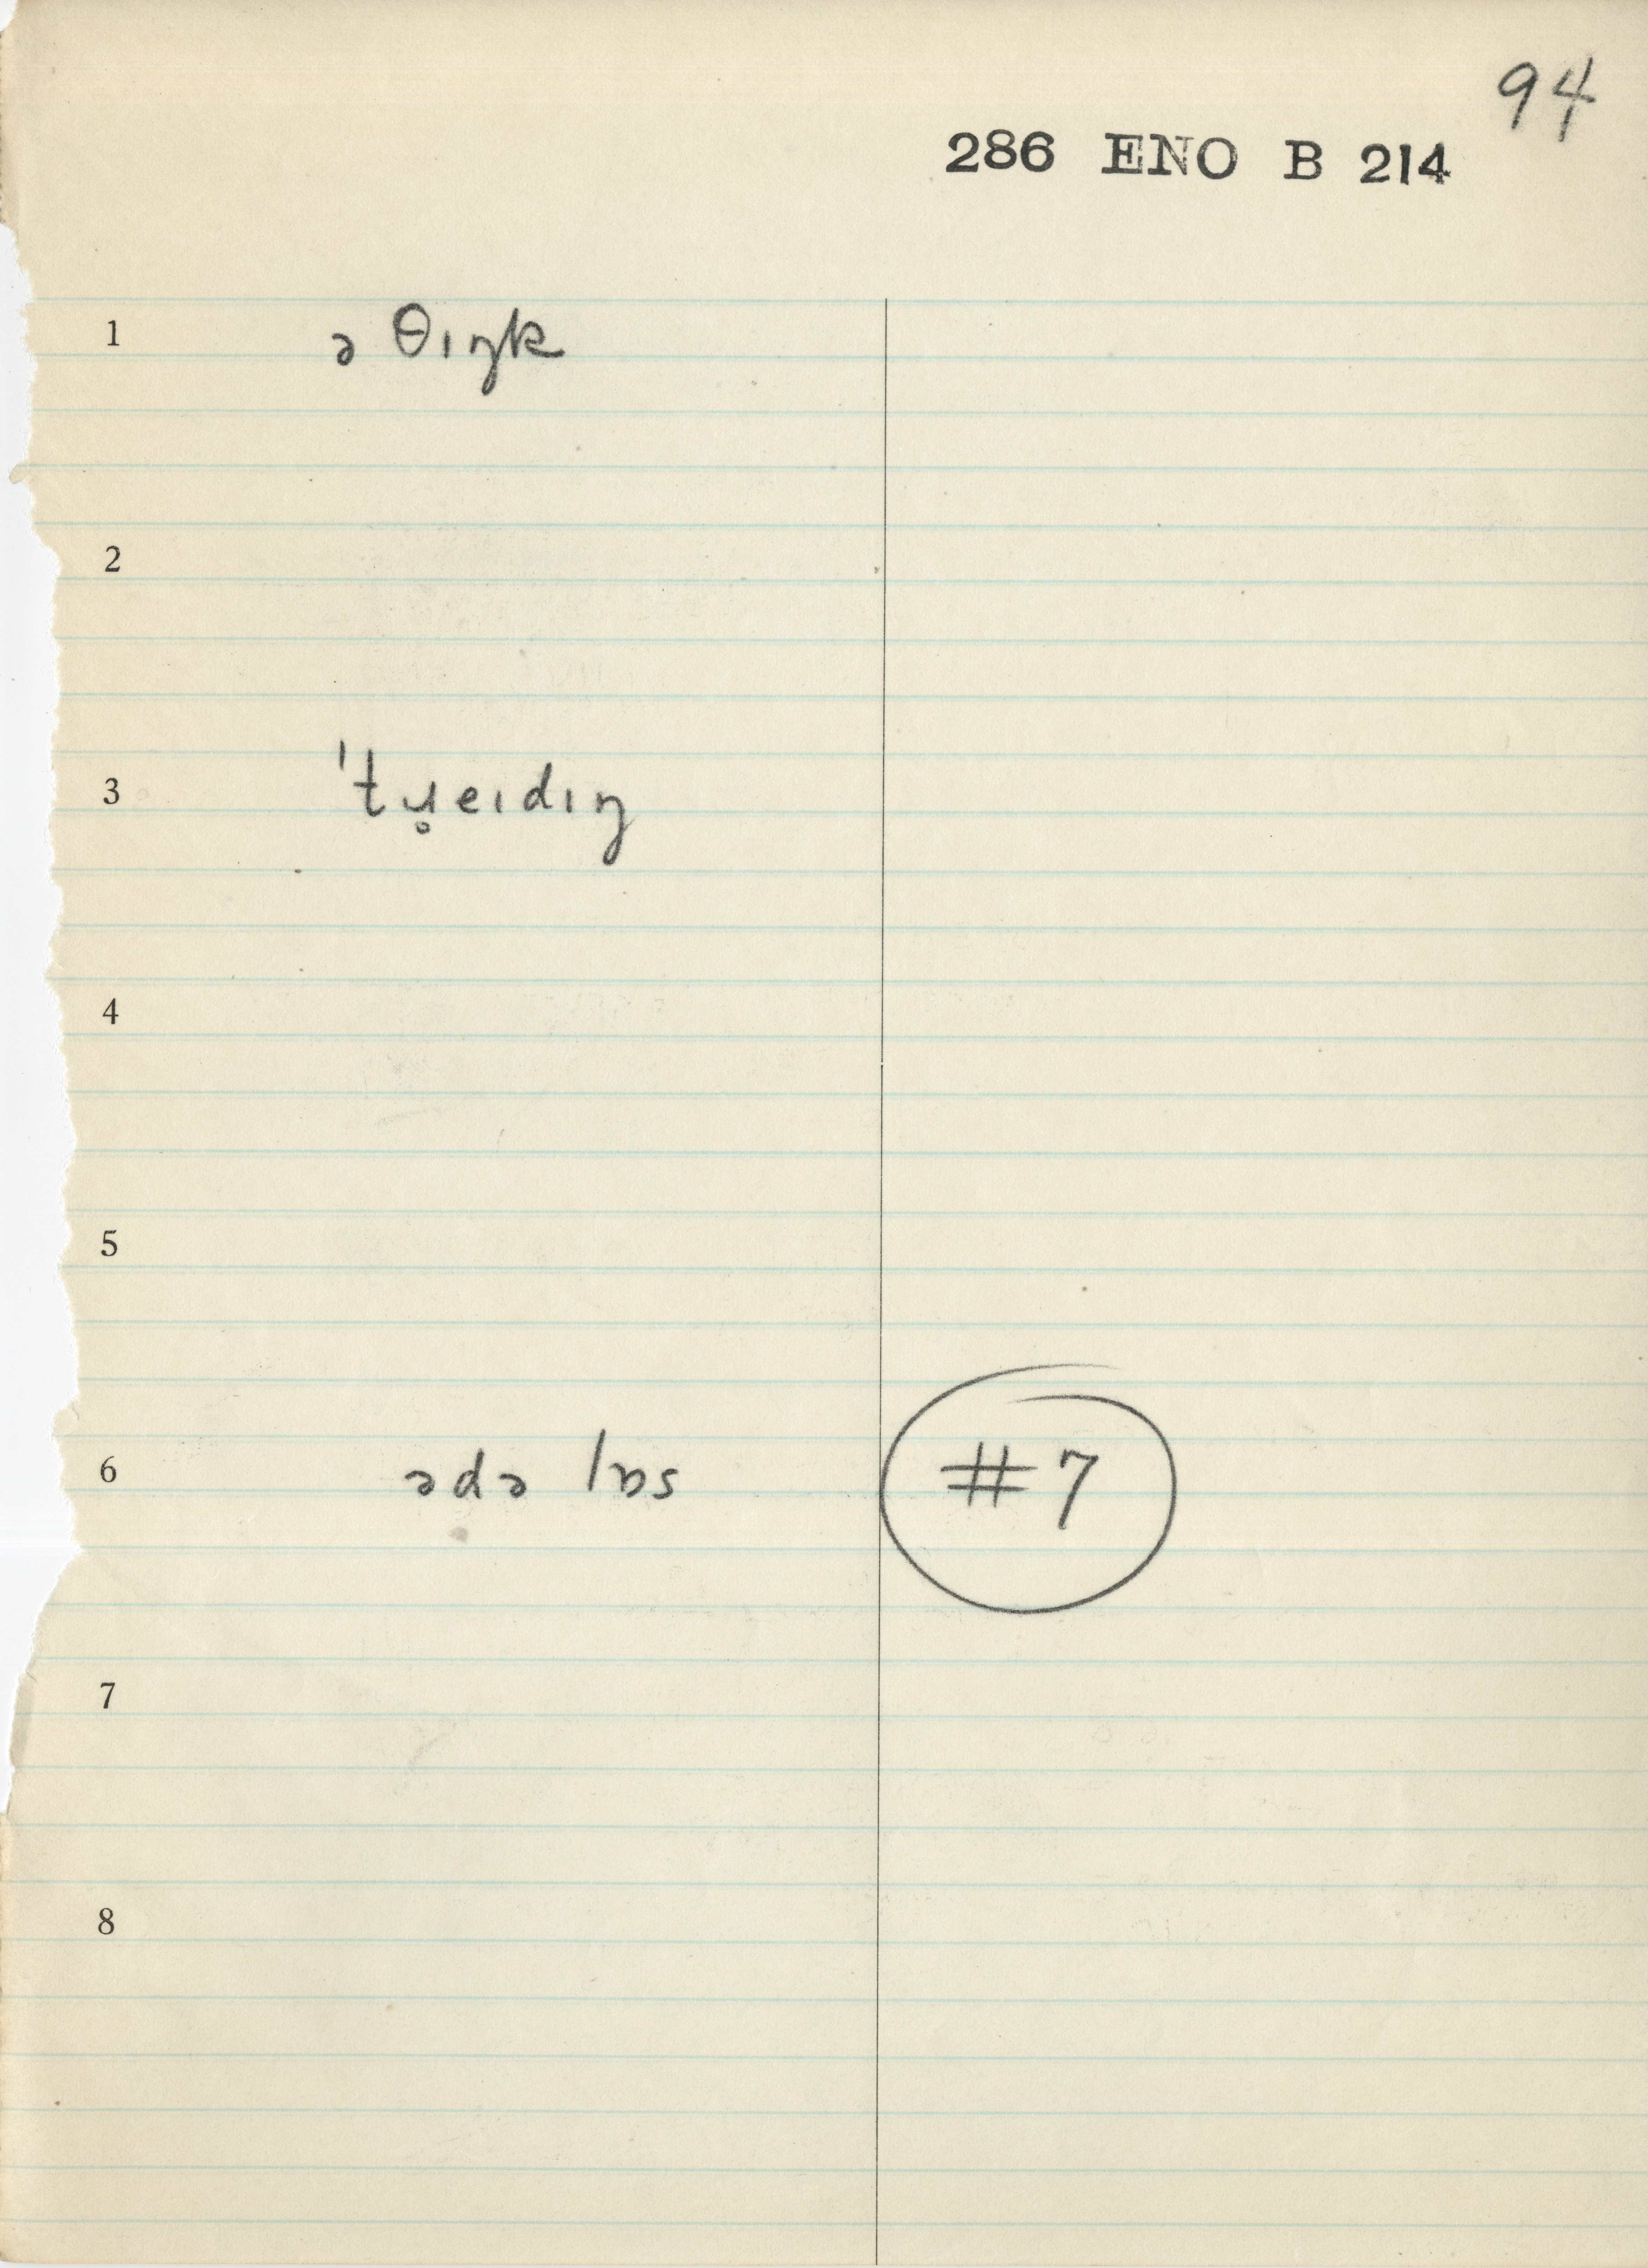 94
286 ENO B 214
1 ə θɪŋk
2
3 ˈtɹ̥eɪdɪŋ
4
5
6 ədə lɒs #7
7
8